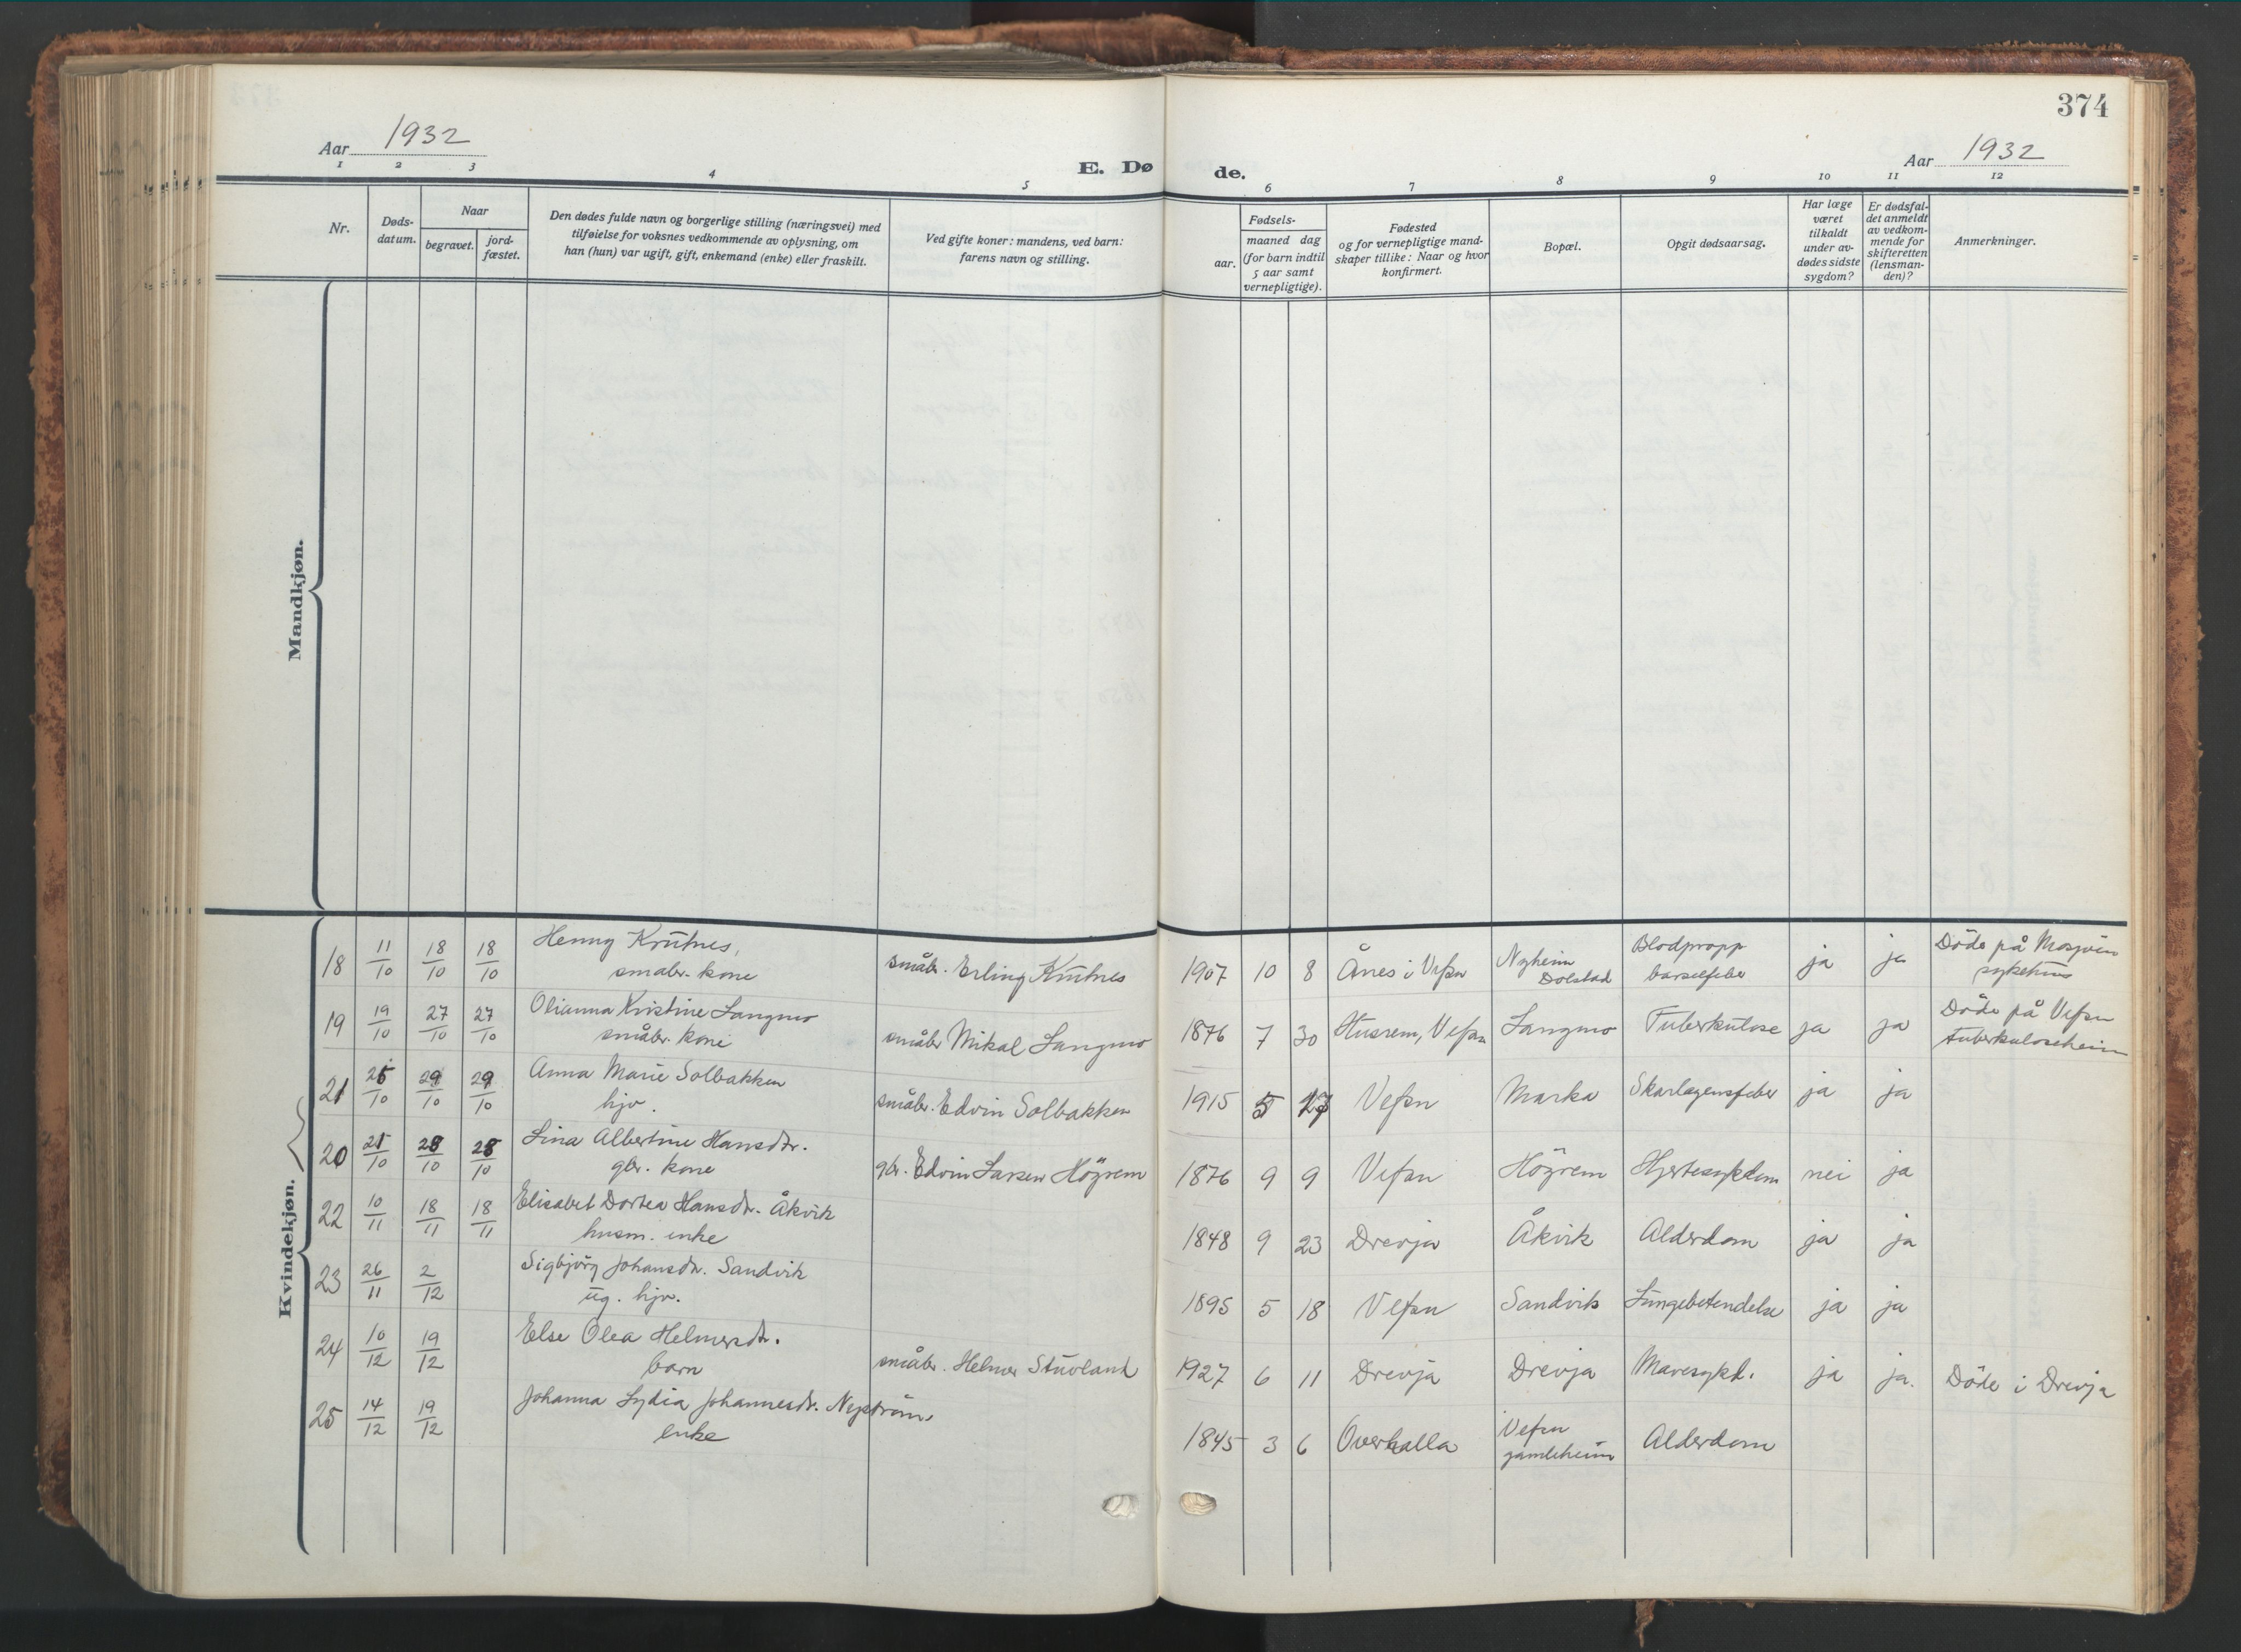 374
Aar 1932
E. Dø de.
Aar 1932
1 2 3 4 5 6 7 8 9 10 11 12
Nr.
Døds-
datum.
Naar
begravet.
jord-
fæstet.
Den dødes fulde navn og borgerlige stilling (næringsvei) med
tilføielse for voksnes vedkommende av oplysning, om
han (hun) var ugift, gift, enkemand (enke) eller fraskilt.
Ved gifte koner: mandens, ved barn:
farens navn og stilling.
Fødsels-
aar.
maaned dag
(for barn indtil
5 aar samt
vernepligtige).
Fødested
og for vernepligtige mand-
skaper tillike: Naar og hvor
konfirmert.
Bopæl.
Opgit dødsaarsag.
Har læge
været
tilkaldt
under av-
dødes sidste
sygdom?
Er dødsfal-
det anmeldt
av vedkom-
mende for
skifteretten
(lensman-
den)?
Anmerkninger.
Mandkjøn.
Kvindekjøn.
18 11/10 18/10 18/10 Henny Krutnes, småbr. Erling Krutnes 1907 10 8 Ånes i Vefsn Nyheim Blodpropp ja ja Döde på Mosjöen
småbr. kone Dolstad barselfeber sykehus
19 19/10 27/10 27/10 Olianna Kristine Langmo småbr Mikal Langmo 1876 7 30 Husrem, Vefsn Langmo Tuberkulose ja ja Döde på Vefsn
småbr. kone tuberkuloseheim
21 25/10 29/10 29/10 Anna Marie Solbakken småbr. Edvin Solbakken 1915 5 Vefsn Marka Skarlagensfeber ja ja
hjv.
20 21/10 28/10 28/10 Lina Albertine Hansdtr. gbr. Edvin Larsen Högrem 1876 9 9 Vefsn Högrem Hjertesykdom nei ja
gbr. kone
22 10/11 18/11 18/11 Elisabet Dortea Hansdtr. Åkvik 1848 9 23 Drevja Åkvik Alderdom ja ja
husm. enke
23 26/11 2/12 Sigbjörg Johansdtr. Sandvik 1895 5 18 Vefsn Sandvik Lungebetendelse ja ja
ug. hjv.
24 10/12 19/12 Else Olea Helmersdtr. småbr. Helmer Stuvland 1927 6 11 Drevja Drevja Mavesykd. ja ja. Döde i Drevja
barn
25 14/12 19/12 Johanna Lydia Johannesdtr. Nyström 1845 3 6 Overhalla Vefsn Alderdom
enke gamleheim